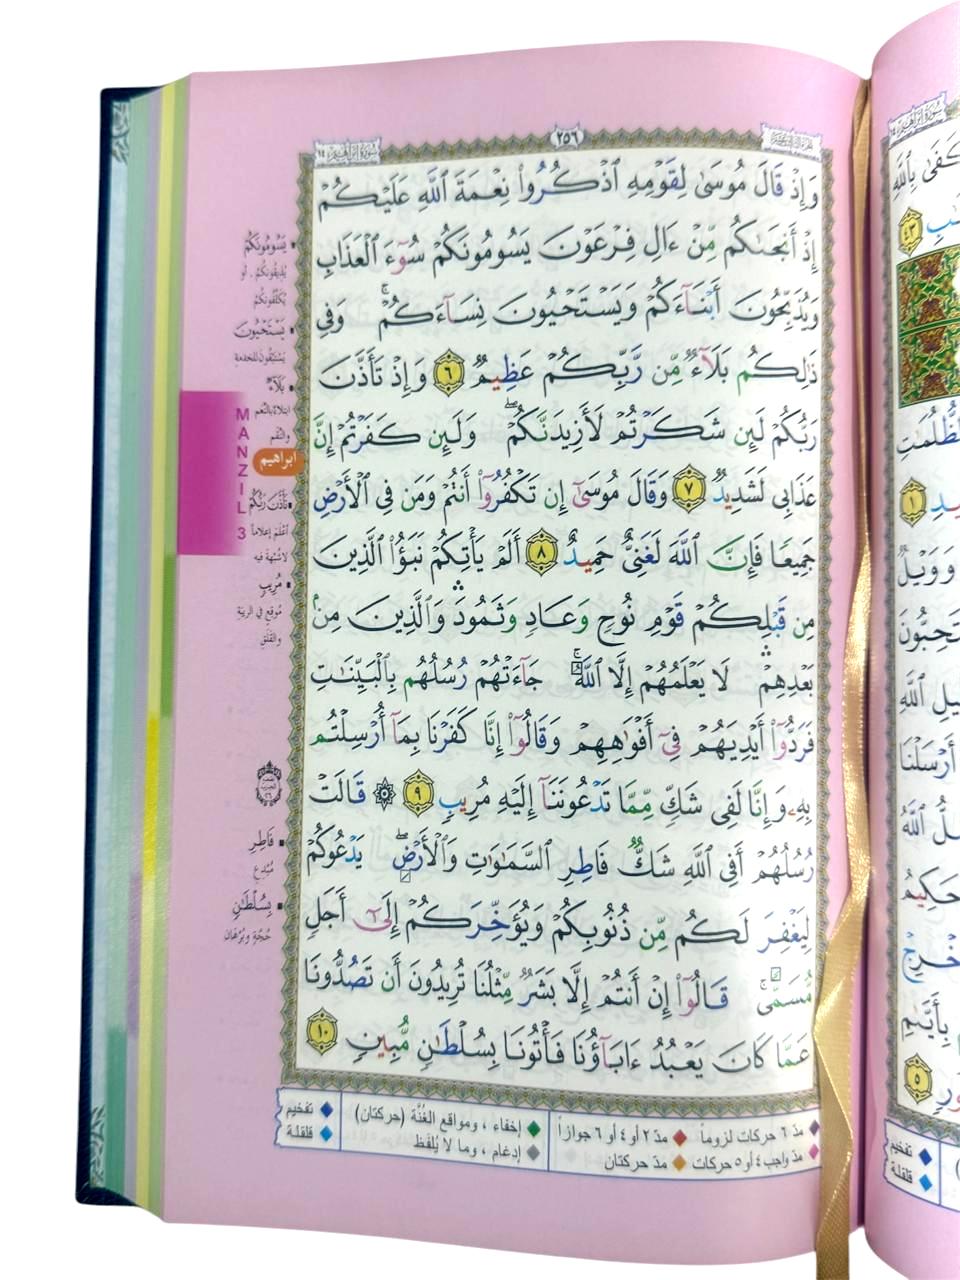 سورة إبراهيم ١٤
٢٥٦
وَإِذْ قَالَ مُوسَىٰ لِقَوْمِهِ ٱذْكُرُوا۟ نِعْمَةَ ٱللَّهِ عَلَيْكُمْ
إِذْ أَنجَىٰكُم مِّنْ ءَالِ فِرْعَوْنَ يَسُومُونَكُمْ سُوٓءَ ٱلْعَذَابِ
وَيُذَبِّحُونَ أَبْنَآءَكُمْ وَيَسْتَحْيُونَ نِسَآءَكُمْ ۚ وَفِى
ذَٰلِكُم بَلَآءٌ مِّن رَّبِّكُمْ عَظِيمٌ ٦ وَإِذْ تَأَذَّنَ
رَبُّكُمْ لَئِن شَكَرْتُمْ لَأَزِيدَنَّكُمْ ۖ وَلَئِن كَفَرْتُمْ إِنَّ
عَذَابِى لَشَدِيدٌ ٧ وَقَالَ مُوسَىٰٓ إِن تَكْفُرُوٓا۟ أَنتُمْ وَمَن فِى ٱلْأَرْضِ
جَمِيعًا فَإِنَّ ٱللَّهَ لَغَنِىٌّ حَمِيدٌ ٨ أَلَمْ يَأْتِكُمْ نَبَؤُا۟ ٱلَّذِينَ
مِن قَبْلِكُمْ قَوْمِ نُوحٍ وَعَادٍ وَثَمُودَ ۛ وَٱلَّذِينَ مِنۢ
بَعْدِهِمْ ۛ لَا يَعْلَمُهُمْ إِلَّا ٱللَّهُ ۚ جَآءَتْهُمْ رُسُلُهُم بِٱلْبَيِّنَٰتِ
فَرَدُّوٓا۟ أَيْدِيَهُمْ فِىٓ أَفْوَٰهِهِمْ وَقَالُوٓا۟ إِنَّا كَفَرْنَا بِمَآ أُرْسِلْتُم
بِهِۦ وَإِنَّا لَفِى شَكٍّ مِّمَّا تَدْعُونَنَآ إِلَيْهِ مُرِيبٍ ٩ ۞ قَالَتْ
رُسُلُهُمْ أَفِى ٱللَّهِ شَكٌّ فَاطِرِ ٱلسَّمَٰوَٰتِ وَٱلْأَرْضِ ۖ يَدْعُوكُمْ
لِيَغْفِرَ لَكُم مِّن ذُنُوبِكُمْ وَيُؤَخِّرَكُمْ إِلَىٰٓ أَجَلٍ
مُّسَمًّى ۚ قَالُوٓا۟ إِنْ أَنتُمْ إِلَّا بَشَرٌ مِّثْلُنَا تُرِيدُونَ أَن تَصُدُّونَا
عَمَّا كَانَ يَعْبُدُ ءَابَآؤُنَا فَأْتُونَا بِسُلْطَٰنٍ مُّبِينٍ ١٠
يَسُومُونَكُمْ
يُذِيقُونَكُمْ ، أو
يُكَلِّفُونَكُمْ
يَسْتَحْيُونَ
يَسْتَبْقُونَ للخدمةِ
بَلَآءٌ
ابتلاءٌ بالنِّعَم
والنِّقَم
ابراهيم
MANZIL 3
تَأَذَّنَ رَبُّكُمْ
أعْلَمَ إعلاماً
لا شُبْهَةَ فيه
مُرِيبٍ
مُوقِعٍ في الريبة
والقَلَق
فَاطِرِ
مُبْدِعِ
بِسُلْطَٰنٍ
حُجَّةٍ وبُرْهَان
مدّ ٦ حركات لزوماً
مدّ ٢ أو ٤ أو ٦ جوازاً
مدّ واجب ٤ أو ٥ حركات
مدّ حركتان
إخفاء ، ومواقع الغُنَّة (حركتان)
إدغام ، وما لا يُلفَظ
تفخيم
قلقلة
سورة إبراهيم
ٱلظُّلُمَٰتِ
أَرْسَلْنَا
تفخيم
قلقلة